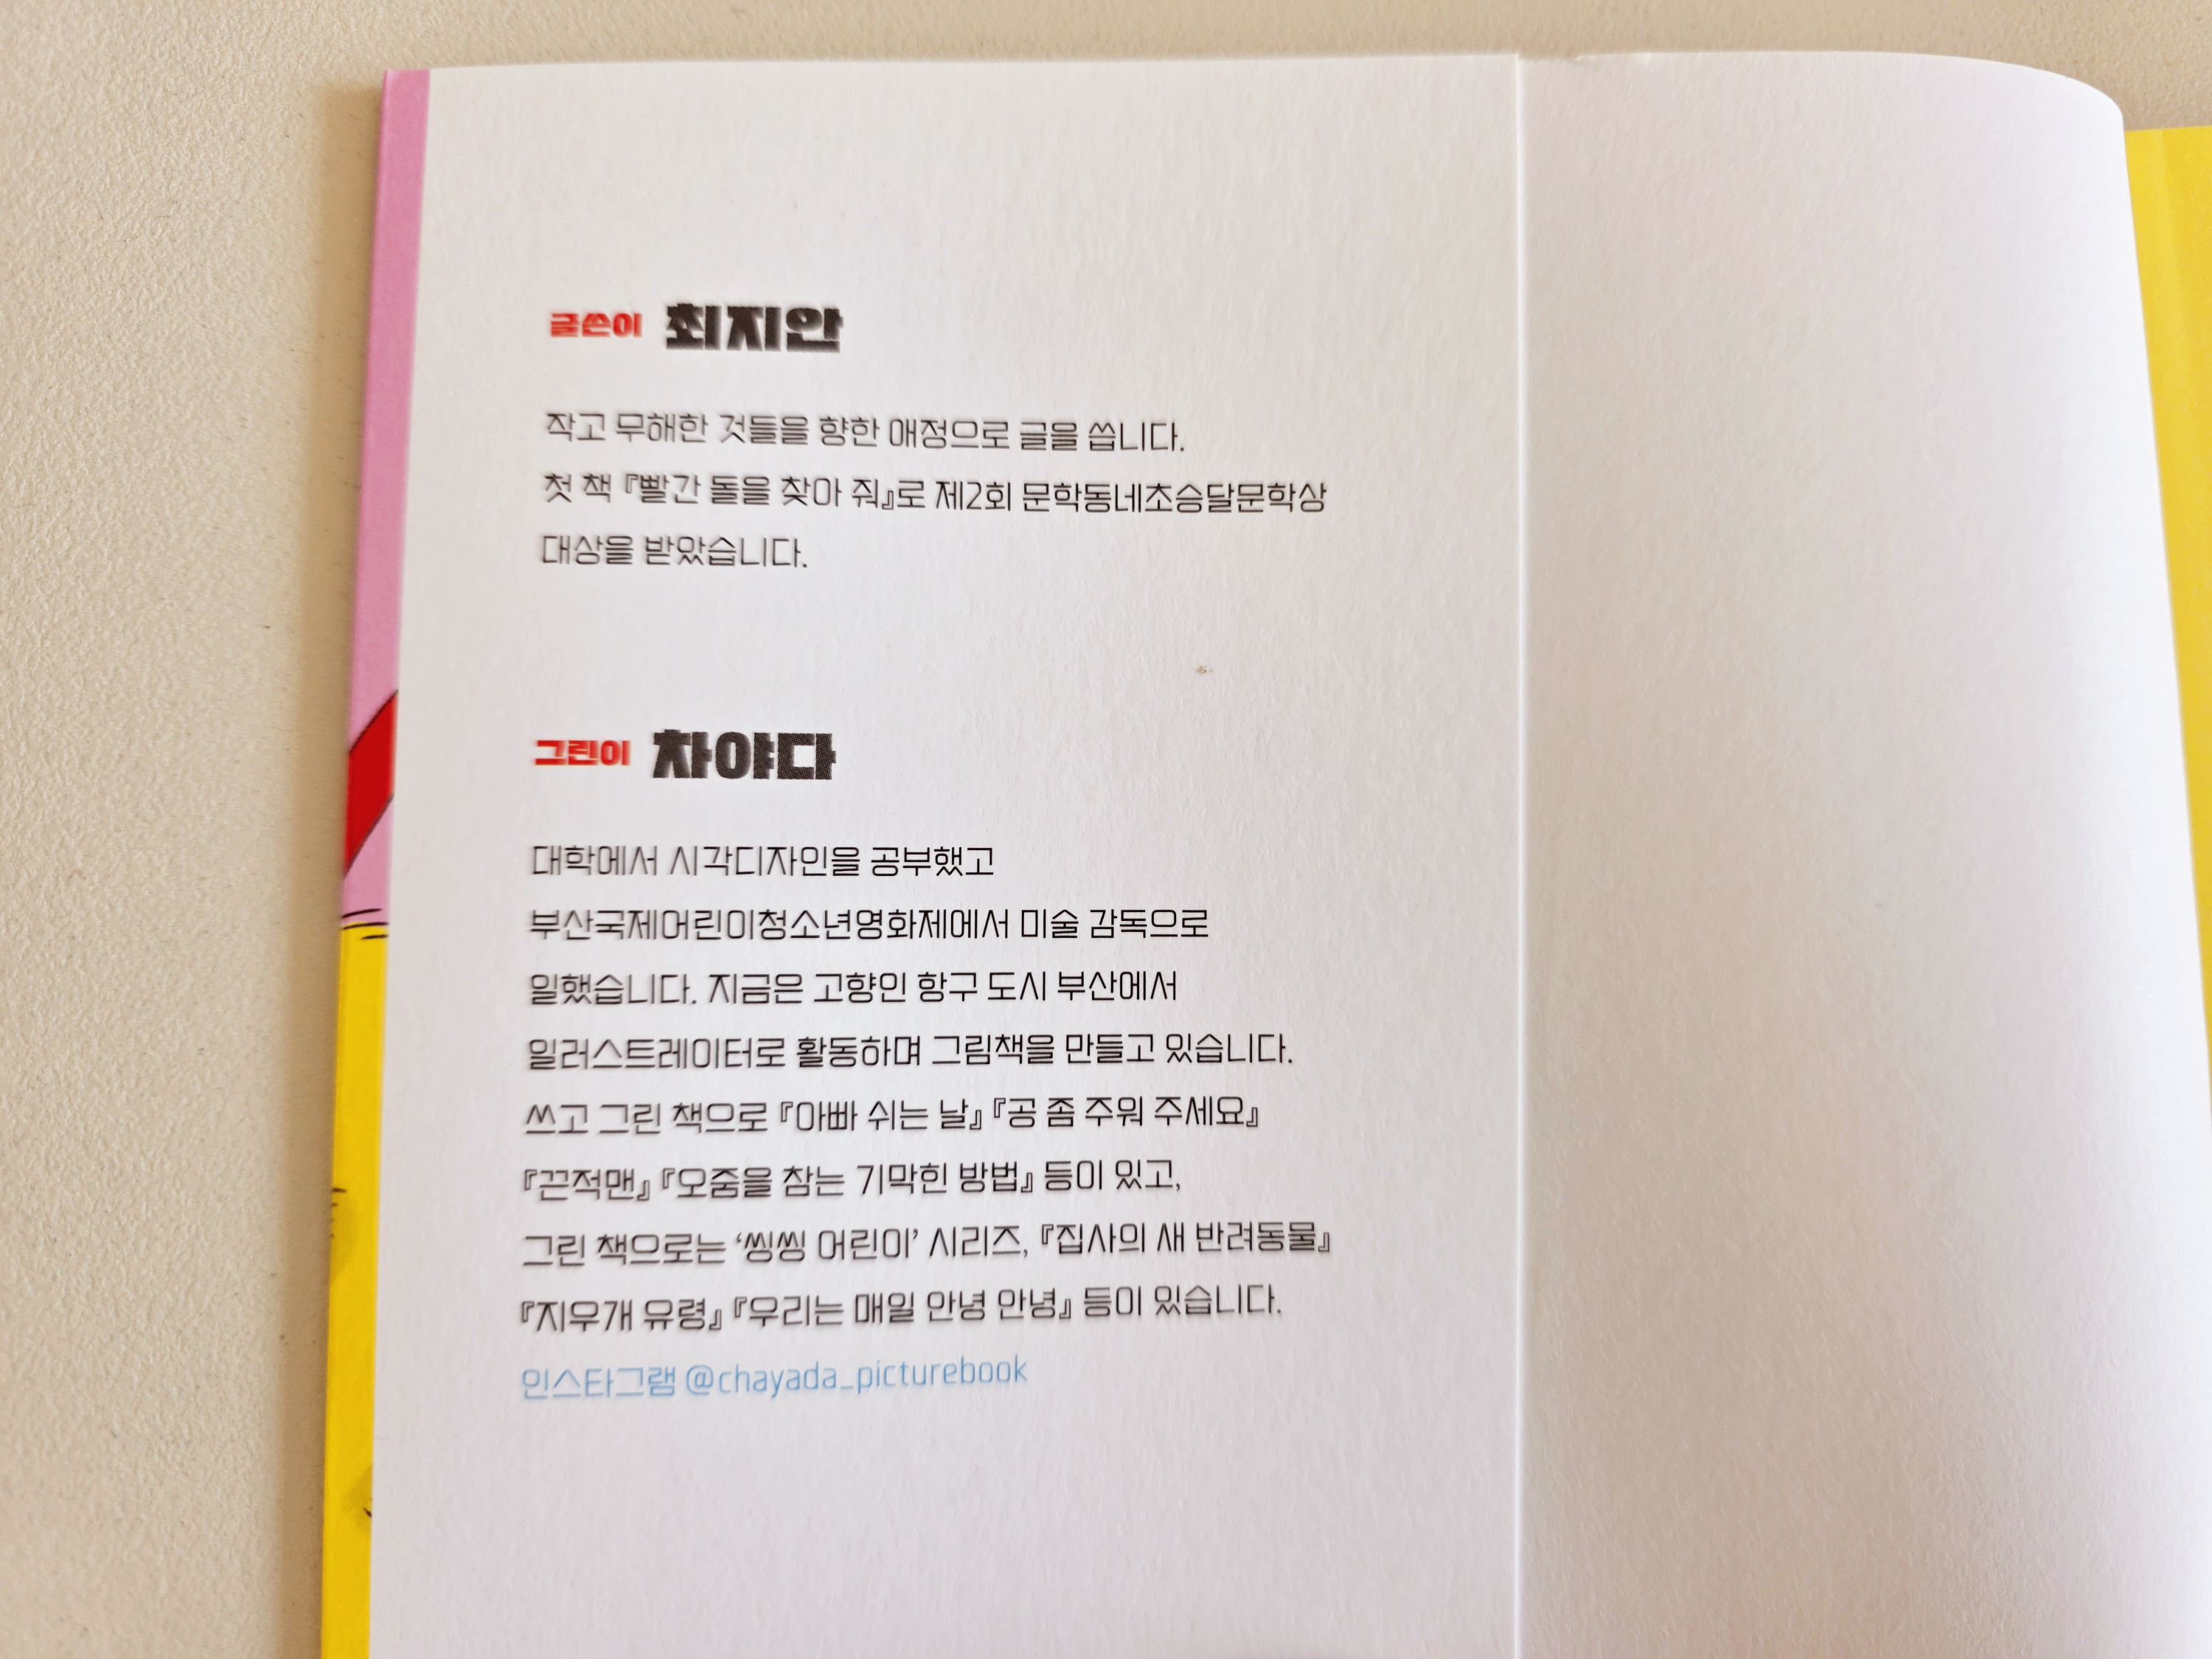 글쓴이 최지안
작고 무해한 것들을 향한 애정으로 글을 씁니다.
첫 책 『빨간 돌을 찾아 줘』로 제2회 문학동네초승달문학상
대상을 받았습니다.
그린이 차야다
대학에서 시각디자인을 공부했고
부산국제어린이청소년영화제에서 미술 감독으로
일했습니다. 지금은 고향인 항구 도시 부산에서
일러스트레이터로 활동하며 그림책을 만들고 있습니다.
쓰고 그린 책으로 『아빠 쉬는 날』 『공 좀 주워 주세요』
『끈적맨』 『오줌을 참는 기막힌 방법』 등이 있고,
그린 책으로는 ‘씽씽 어린이’ 시리즈, 『집사의 새 반려동물』
『지우개 유령』 『우리는 매일 안녕 안녕』 등이 있습니다.
인스타그램 @chayada_picturebook